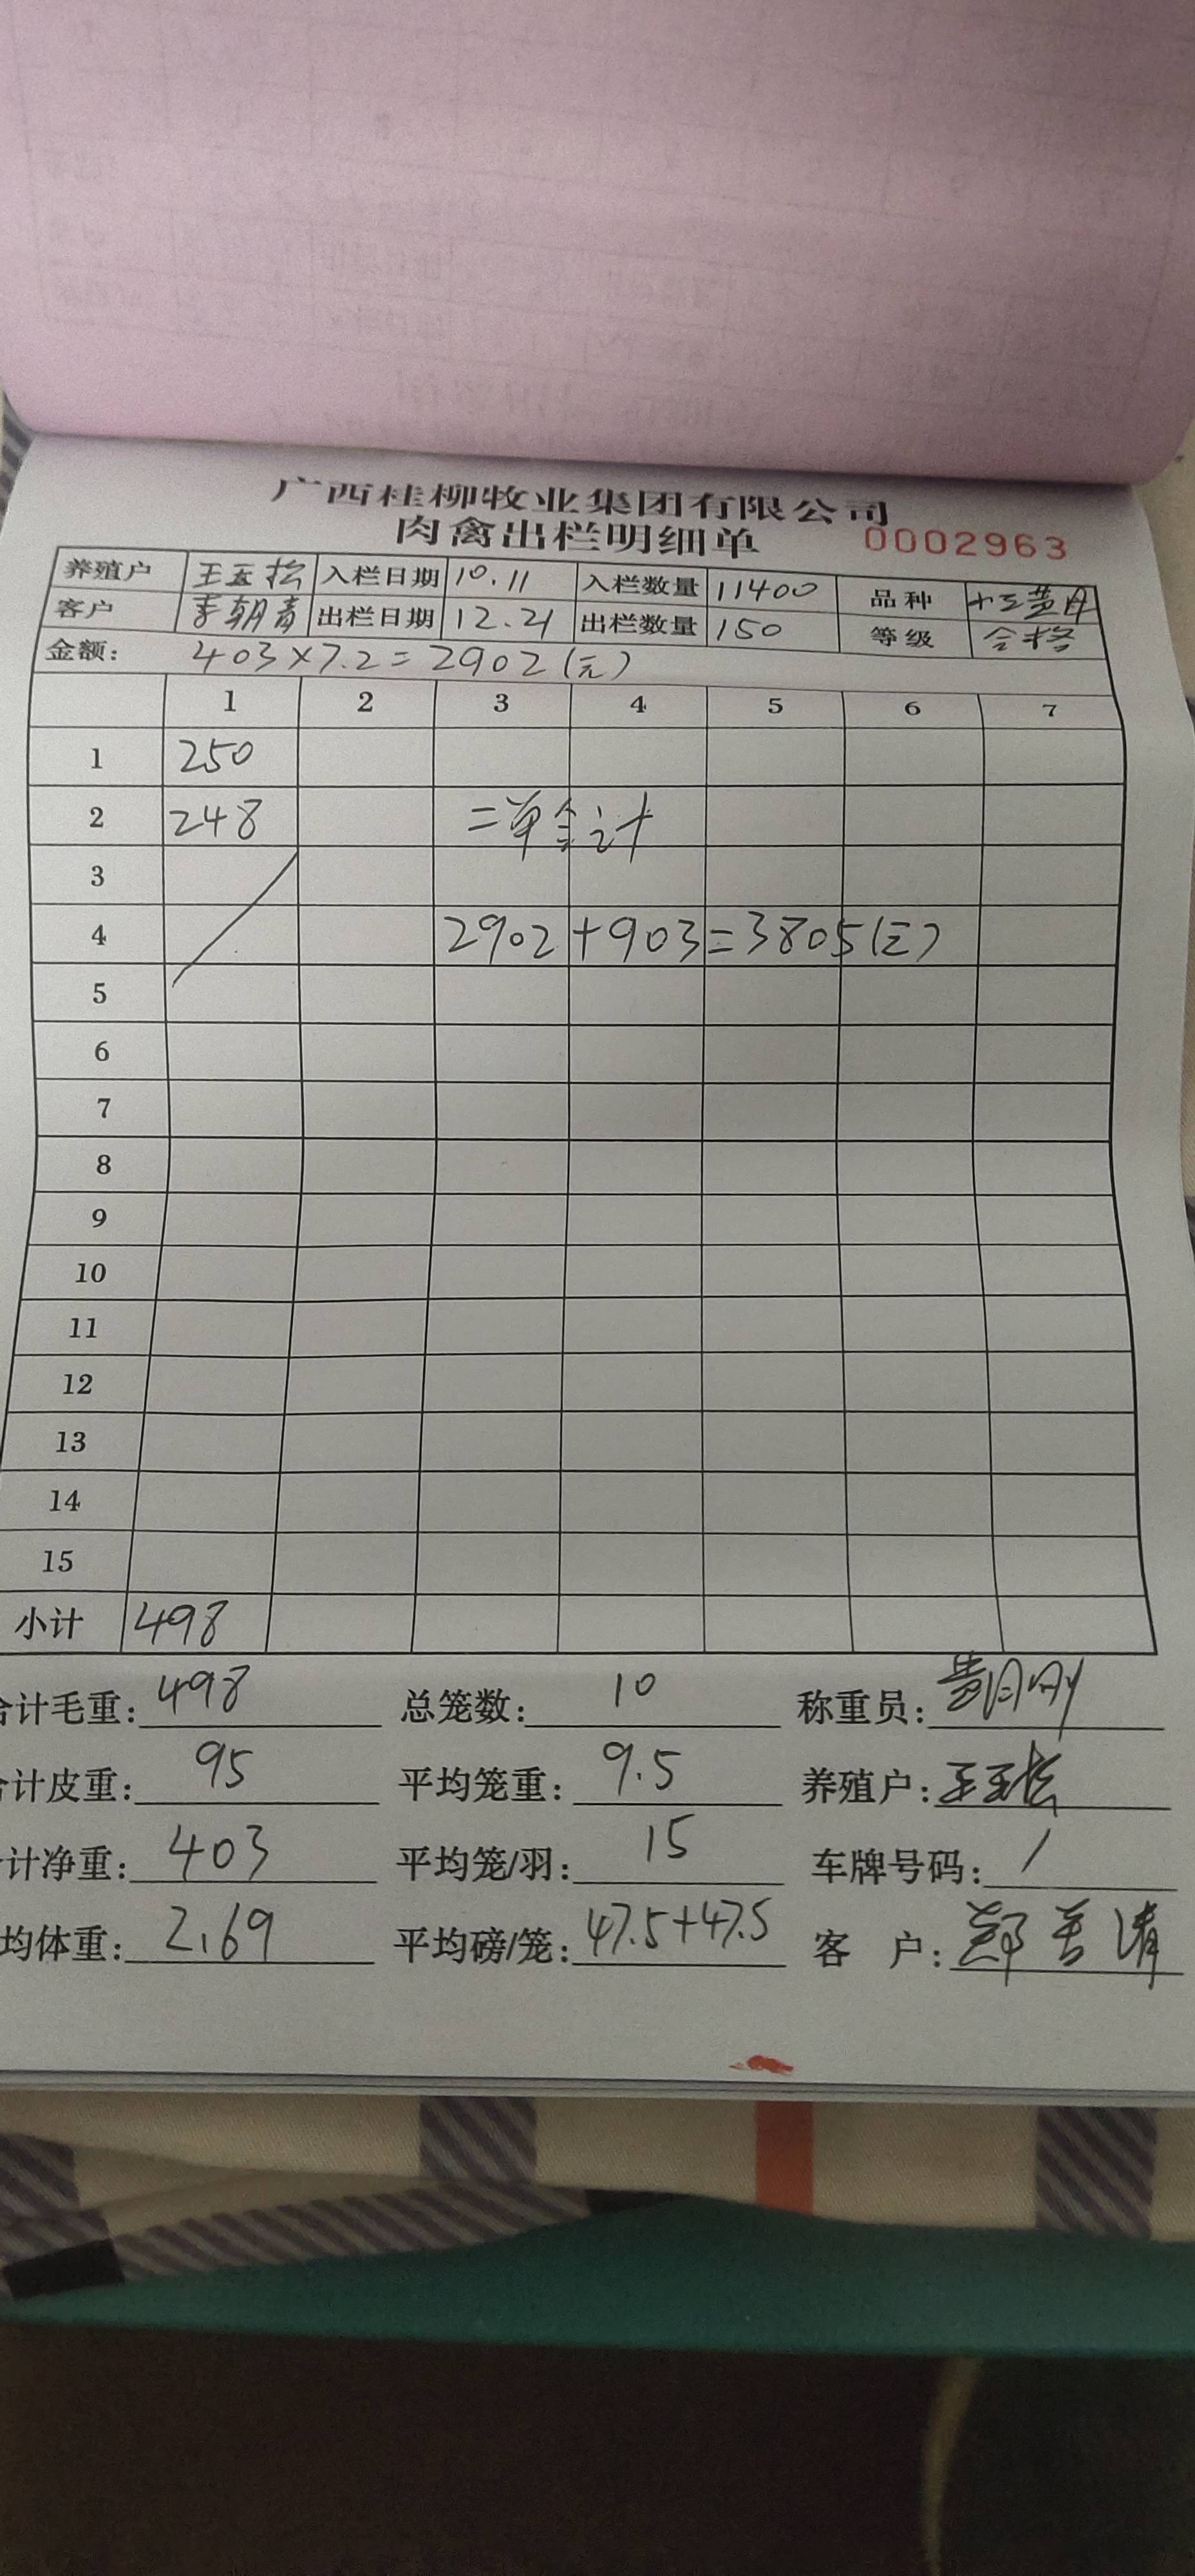 广西桂柳牧业集团有限公司
肉禽出栏明细单 0002963
养殖户 王玉松 入栏日期 10.11 入栏数量 11400 品种
客户 李朝青 出栏日期 12.21 出栏数量 150 等级 合格
金额: 403×7.2=2902(元)
1 2 3 4 5 6 7
1 250
2 248 二单合计
3
4 2902+903=3805(元)
5
6
7
8
9
10
11
12
13
14
15
小计 498
合计毛重: 498 总笼数: 10 称重员:
计皮重: 95 平均笼重: 9.5 养殖户: 王玉松
计净重: 403 平均笼/羽: 15 车牌号码: /
均体重: 2.69 平均磅/笼: 47.5+47.5 客 户: 郑善清